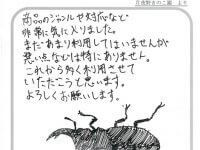 月夜野きのこ園 より
商品のジャンルや対応など
非常に気に入りました。
まだあまり利用してはいませんが
悪い点などは特にありません。
これから多く利用させて
いただこうと思います。
よろしくお願いします。